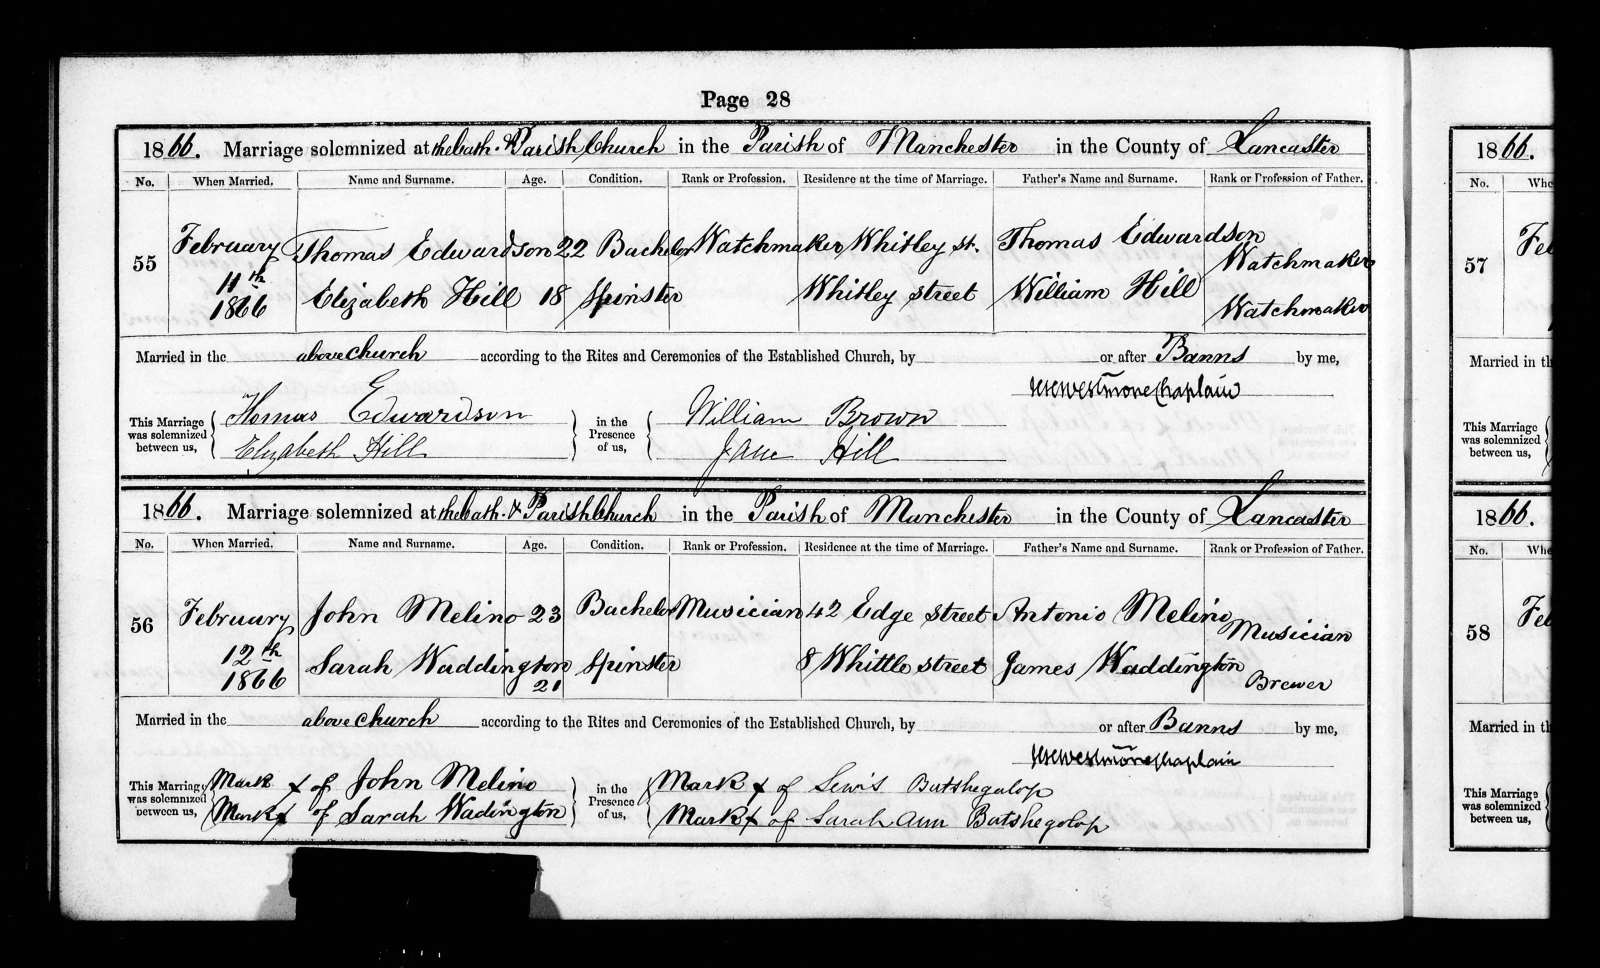 Page 28
1866. Marriage solemnized at the Cath. & Parish Church in the Parish of Manchester in the County of Lancaster
No. When Married. Name and Surname. Age. Condition. Rank or Profession. Residence at the time of Marriage. Father's Name and Surname. Rank or Profession of Father.
55 February 11th 1866 Thomas Edwardson 22 Bachelor Watchmaker Whitley st. Thomas Edwardson Watchmaker
Elizabeth Hill 18 Spinster Whitley street William Hill Watchmaker
Married in the above church according to the Rites and Ceremonies of the Established Church, by or after Banns by me,
Westmore Chaplain
This Marriage was solemnized between us, Thomas Edwardson in the Presence of us, William Brown
Elizabeth Hill Jane Hill
1866. Marriage solemnized at the Cath. & Parish Church in the Parish of Manchester in the County of Lancaster
No. When Married. Name and Surname. Age. Condition. Rank or Profession. Residence at the time of Marriage. Father's Name and Surname. Rank or Profession of Father.
56 February 12th 1866 John Melino 23 Bachelor Musician 42 Edge street Antonio Melino Musician
Sarah Waddington 21 Spinster 8 Whittle street James Waddington Brewer
Married in the above church according to the Rites and Ceremonies of the Established Church, by or after Banns by me,
Westmore Chaplain
This Marriage was solemnized between us, Mark x of John Melino in the Presence of us, Mark x of Lewis Batshegolop
Mark x of Sarah Wadington Mark x of Sarah Ann Batshegolop
1866.
No. Whe
57 Fe
Married in th
This Marriage
was solemnized
between us,
1866.
No. Whe
58 Fe
Married in th
This Marriage
was solemnized
between us,